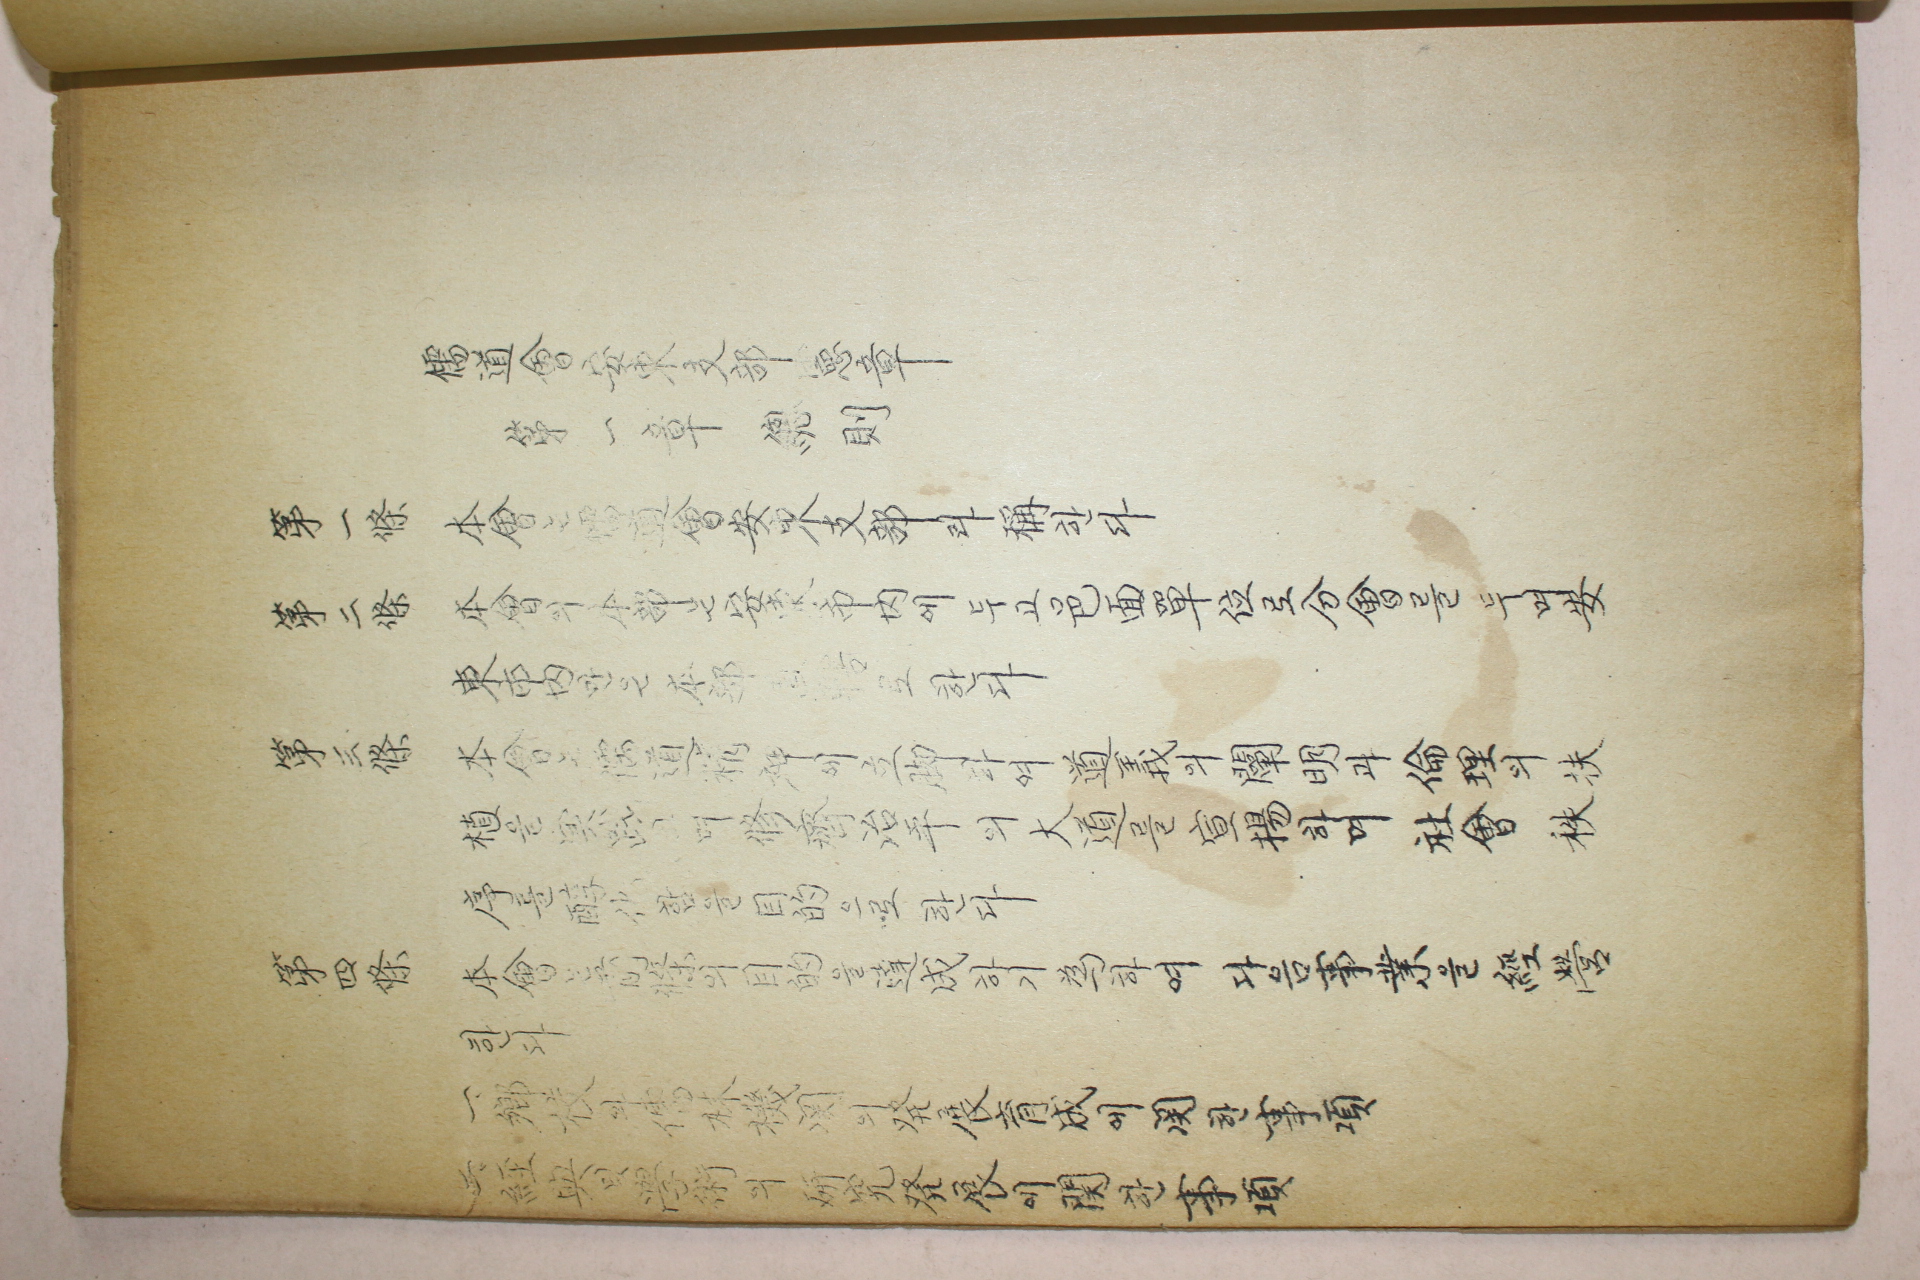 儒道會安東支部憲章
第一章 總則
第一條 本會는 儒道會安東支部라 稱한다
第二條 本會의 本部는 安東市內에 두고 邑面單位로 分會를 두며 安
東市內만은 本部 로 한다
第三條 本會는 儒道精神에 立脚하여 道義의 闡明과 倫理의 扶
植을 하며 修齊治平의 大道를 宣揚하며 社會秩
序를 醇化함을 目的으로 한다
第四條 本會는 前條의 目的을 達成하기 爲하여 다음 事業을 經營
한다
一、鄕校와 儒林機関의 発展育成에 関한 事項
二、經典及學術의 硏究発展에 関한 事項